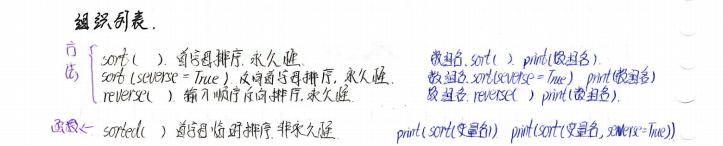 组织列表.
方法 { sort( ). 首字母排序. 永久性. 数组名.sort( ). print(数组名).
sort(severse=True). 反向首字母排序. 永久性. 数组名.sort(severse=True) print(数组名)
reverse( ). 输入顺序反向排序. 永久性. 数组名.reverse( ) print(数组名).
函数← sorted( ) 首字母临时排序. 非永久性. print(sort(变量名)) print(sort(变量名, severse=True))